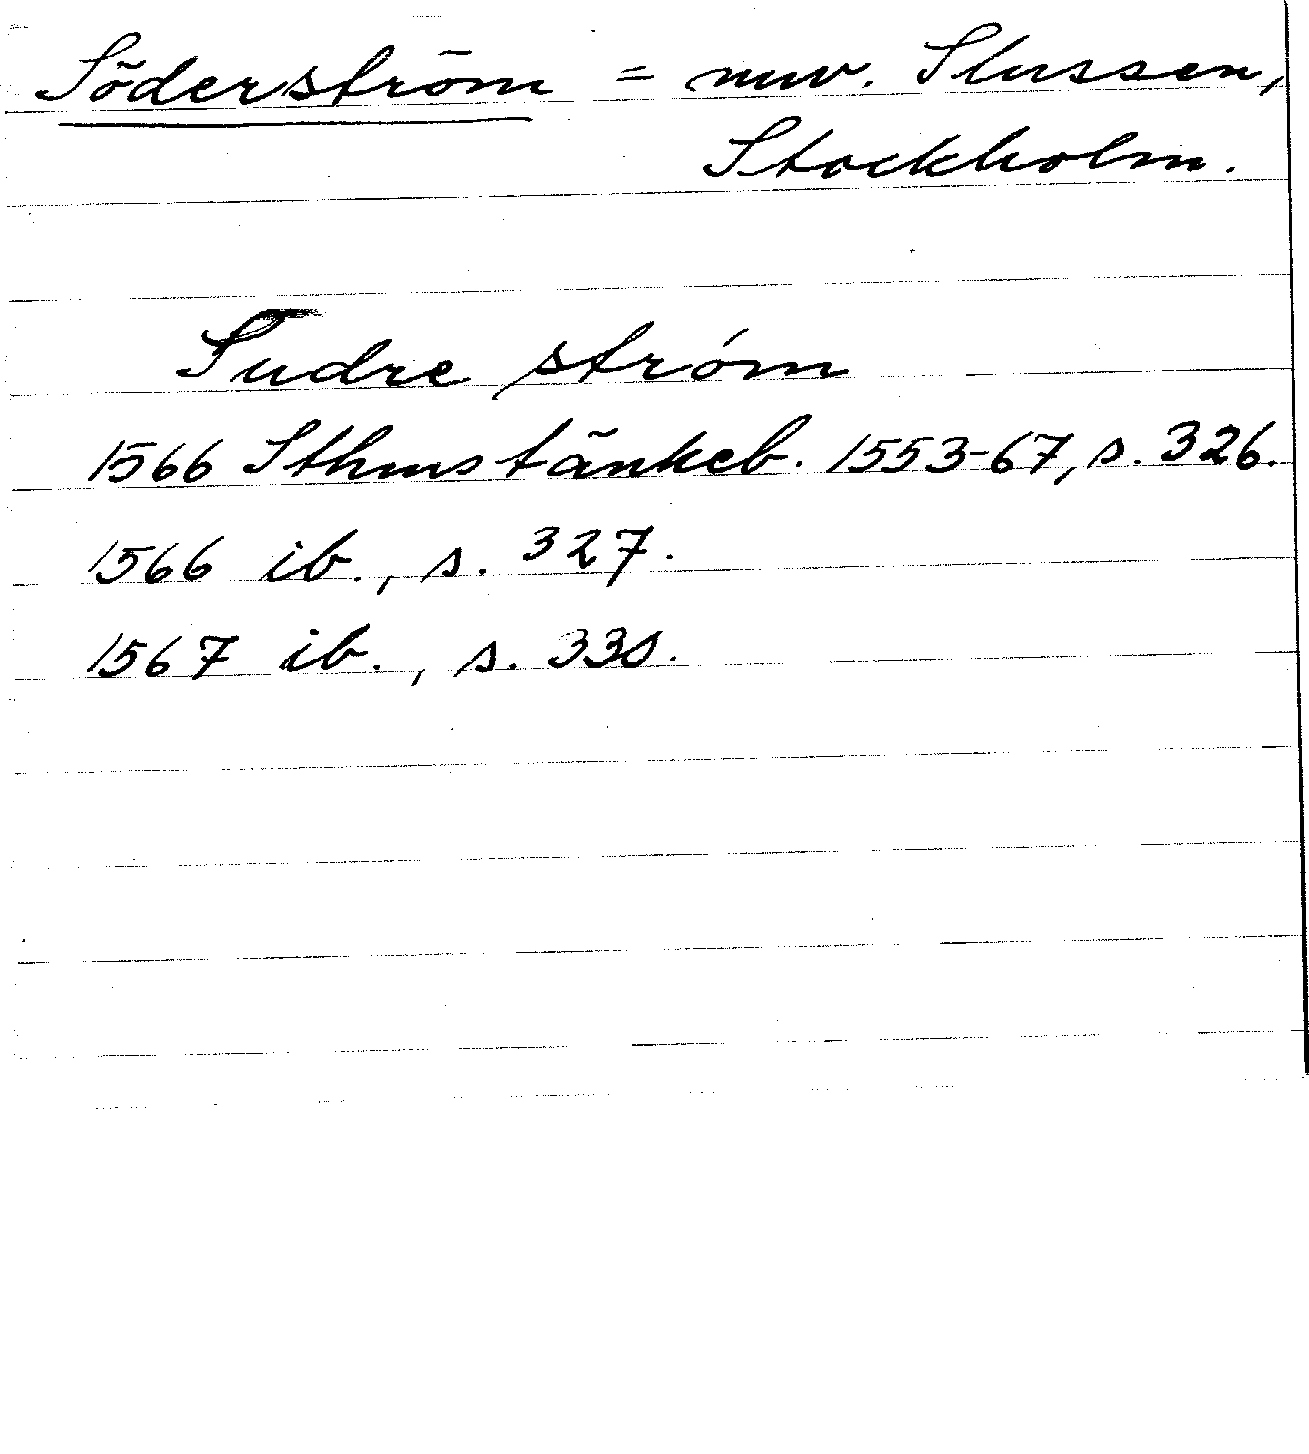 Söderström = nuv. Slussen,
Stockholm.
Sudre ström
1566 Sthms tänkeb. 1553-67, s. 326.
1566 ib., s. 327.
1567 ib., s. 330.